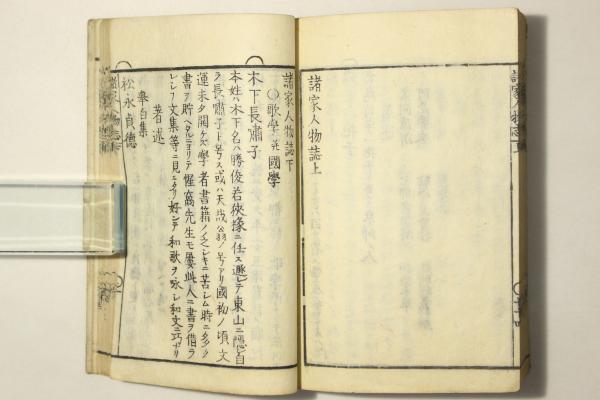 諸家人物誌上
諸家人物誌下
○歌學並國學
木下長嘯子
本姓ハ木下名ハ勝俊若狭掾ニ任ス遯レテ東山ニ隠自
ラ長嘯子ト号ス或ハ天哉翁ノ号アリ國初ノ頃文
運未タ開ケス學者書籍ノ乏シキニ苦シム時ニ
書ヲ貯ヘ惺窩先生モ屡此人ニ書ヲ借ラ
レシ文集等ニ見ヘタリ好シテ和歌ヲ咏シ和文ニ巧ナリ
著述
挙白集
松永貞徳